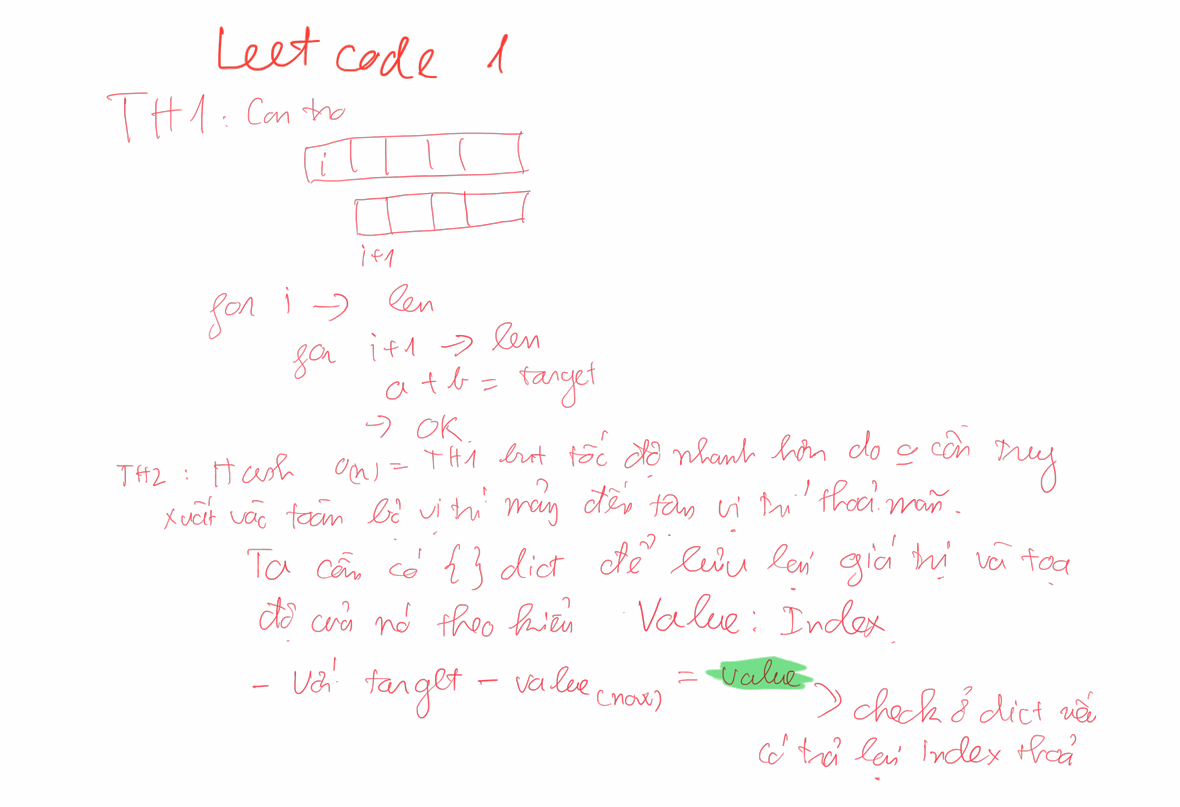 Leet code 1
TH1: Con tro
i
i+1
for i → len
for i+1 → len
a + b = target
→ OK
TH2: Hash O(n) = TH1 but tốc độ nhanh hơn do c cần truy
xuất vào toàn bộ vị trí mảng đến tận vị trí thoả mãn.
Ta cần có { } dict để lưu lại giá trị và toạ
độ của nó theo kiểu Value: Index.
- Với target - value(now) = value
check ở dict nếu
có trả lại index thoả